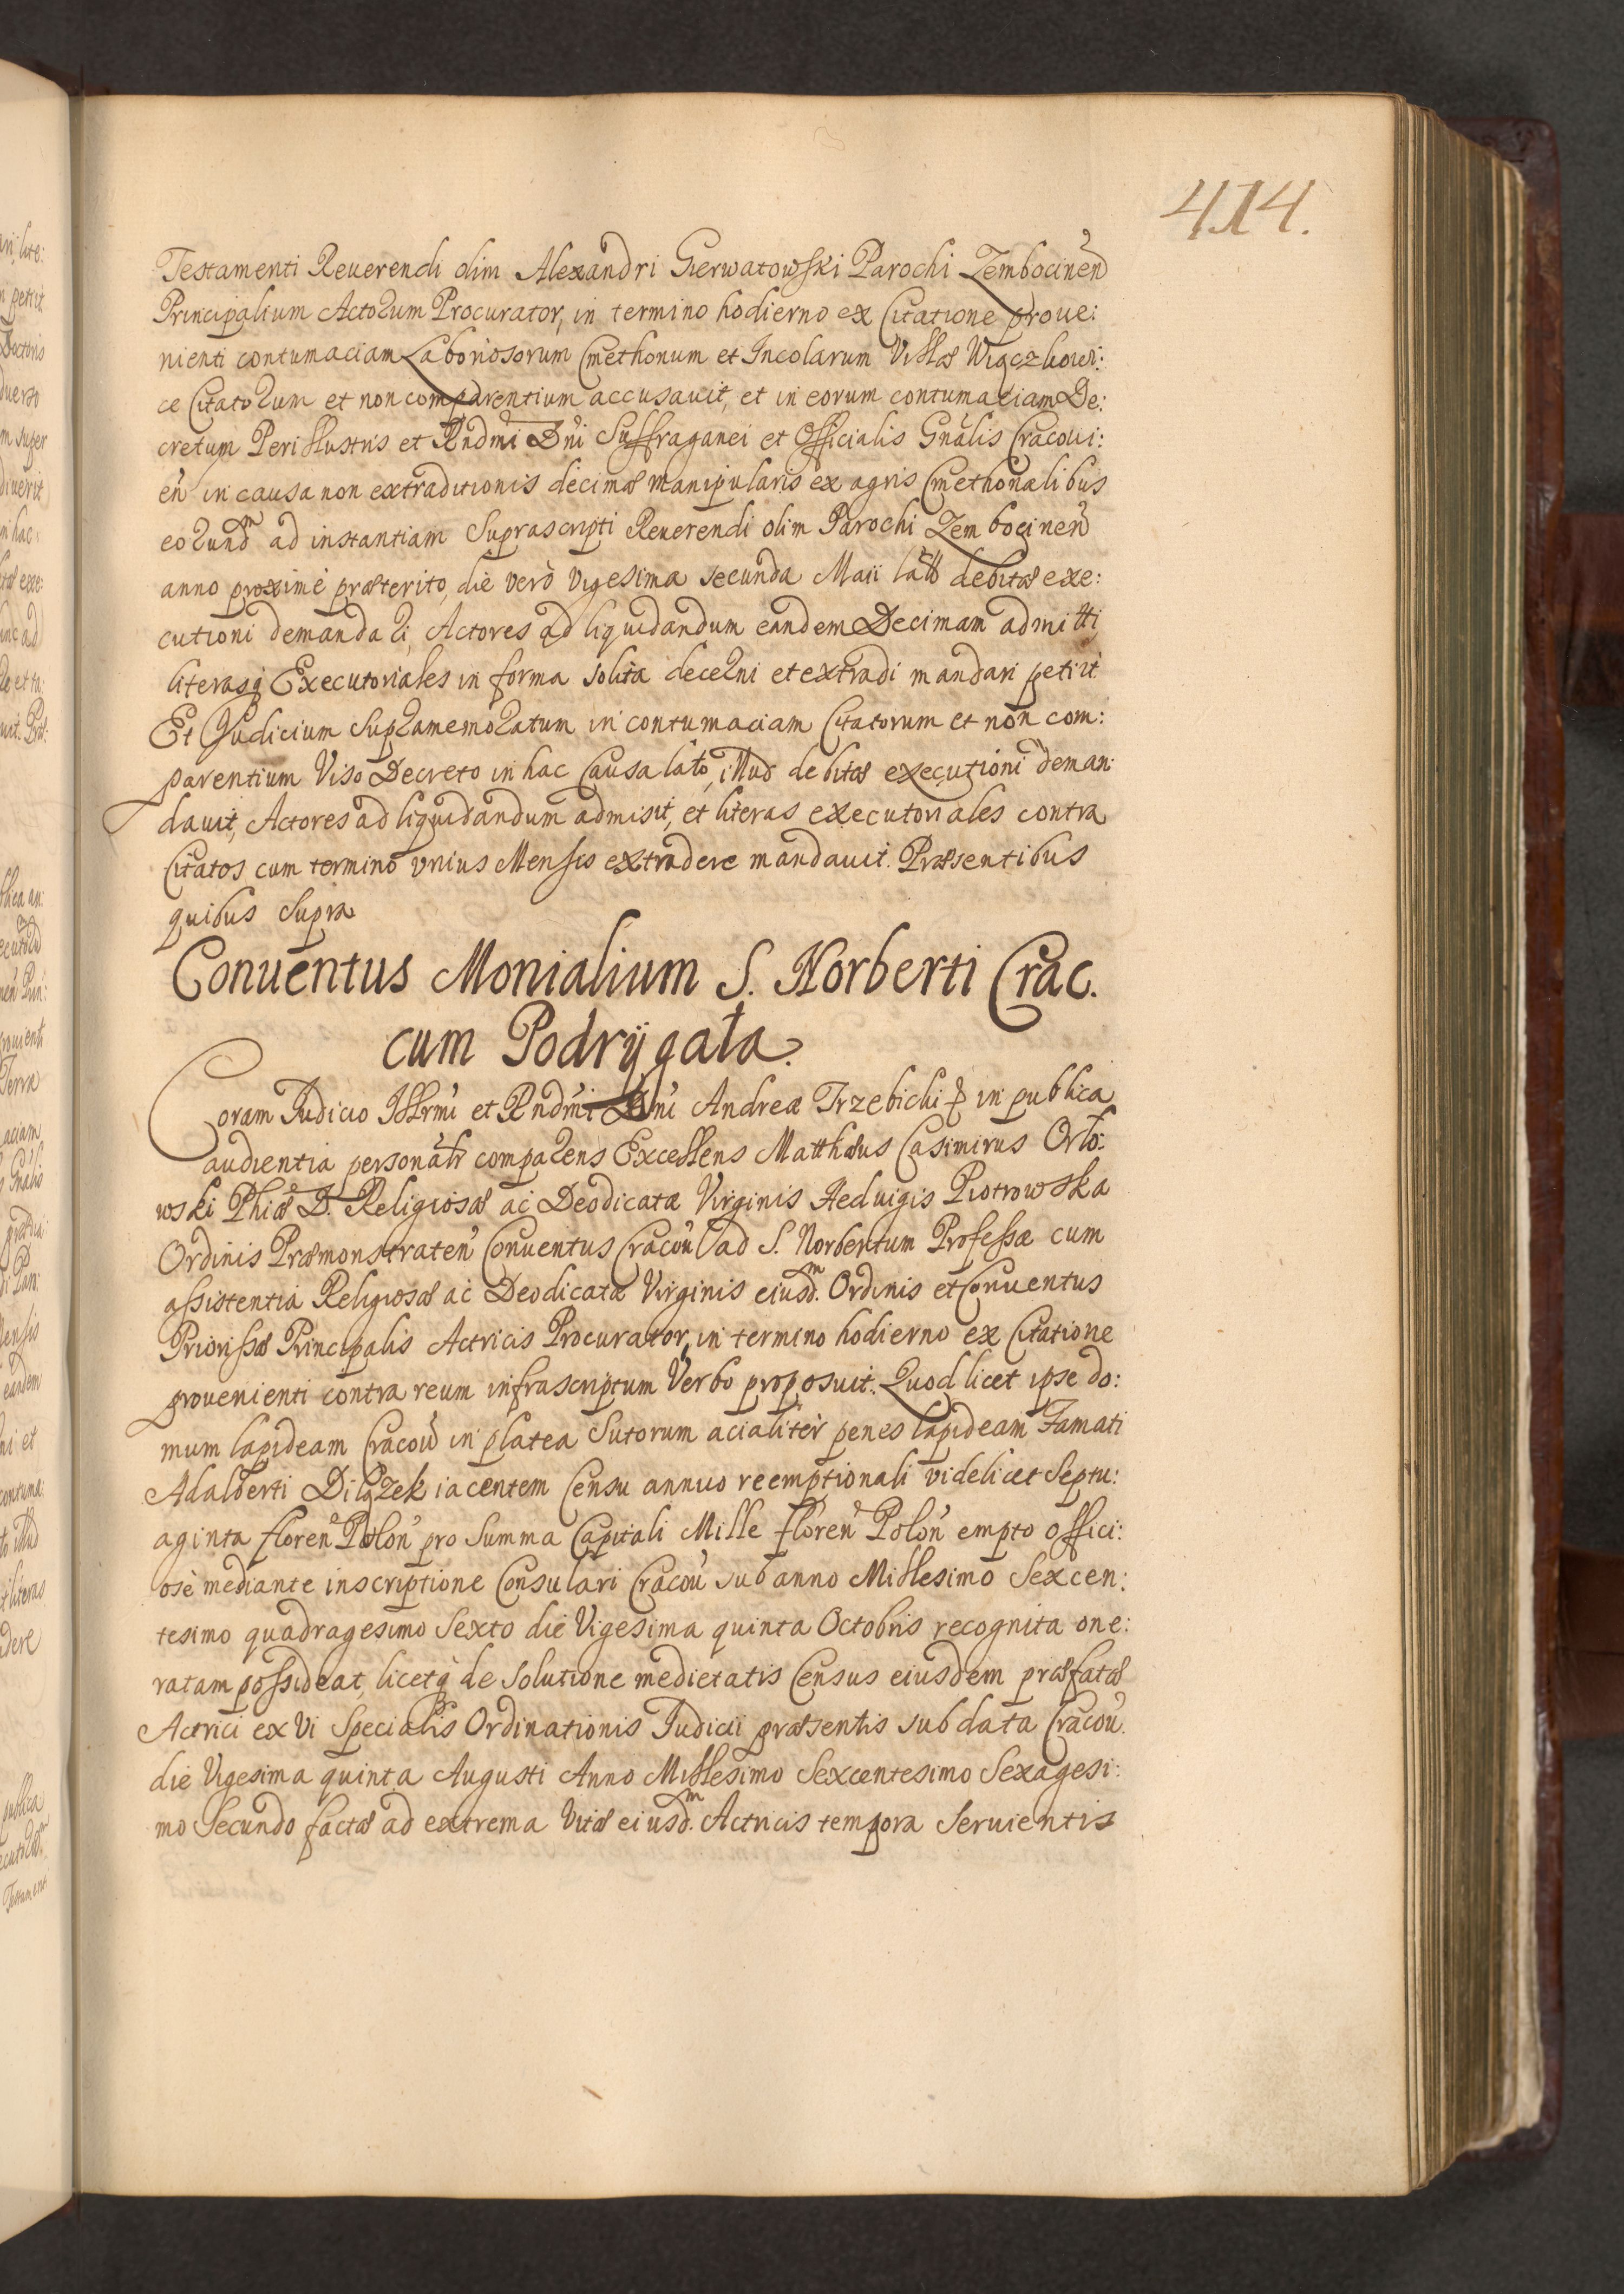 414.
Testamenti Reuerendi olim Alexandri Gierwatowski Parochi Zembocinen
Principalium Actorum Procurator, in termino hodierno ex Citatione proue:
nienti contumaciam Laboriosorum Cmethonum et Incolarum Villæ Więczkowi:
ce Citatorum et non comparentium accusauit, et in eorum contumaciam De:
cretum Perillustris et Rndmi Dni Suffraganei et Officialis Gnalis Cracoui:
en in causa non extraditionis decimæ manipularis ex agris Cmethonalibus
eorund<sup>m</sup> ad instantiam Suprascripti Reuerendi olim Parochi Zembocinen
anno proximè præterito, die verò vigesima secunda Maii latu debitæ exe:
cutioni demandari, Actores ad liquidandum eandem Decimam admitti,
literasq Executoriales in forma solita decerni et extradi mandari petiit
Et Iudicium Supramemoratum in contumaciam Citatorum et non com:
parentium Viso Decreto in hac Causa lato, illud debitæ executioni deman:
dauit, Actores ad liquidandum admisit, et literas executoriales contra
Citatos cum termino vnius Mensis extradere mandauit. Præsentibus
quibus supra
Conuentus Monialium S. Norberti Crac.
cum Podrÿgała.
Coram Iudicio Illrmi et Rndmi Dni Andreæ Trzebichi in publica
audientia personalr comparens Excellens Matthæus Casimirus Orło:
wski Phiæ D. Religiosæ ac Deodicatæ Virginis Heduigis Piotrowska
Ordinis Præmonstraten Conuentus Cracou ad S. Norbertum Professæ cum
assistentia Religiosæ ac Deodicatæ Virginis eiusd<sup>m</sup>. Ordinis et Conuentus
Priorissæ Principalis Actricis Procurator, in termino hodierno ex Citatione
prouenienti contra reum infrascriptum Verbo proposuit. Quod licet ipse do:
mum lapideam Cracou in platea Sutorum acialiter penes lapideam Famati
Adalberti Dilązek iacentem Censu annuo reemptionali videlicet Septu:
aginta floren Polon pro Summa Capitali Mille floren Polon empto offici:
osè mediante inscriptione Consulari Cracou sub anno Millesimo Sexcen:
tesimo quadragesimo Sexto die Vigesima quinta Octobris recognita one:
ratam possideat, licetq de solutione medietatis Census eiusdem præfatæ
Actrici ex Vi Specialis Ordinationis Iudicii præsentis sub data Cracou.
die Vigesima quinta Augusti Anno Millesimo Sexcentesimo Sexagesi:
mo Secundo factæ ad extrema Vitæ eiusd<sup>m</sup>. Actricis tempora Seruientis